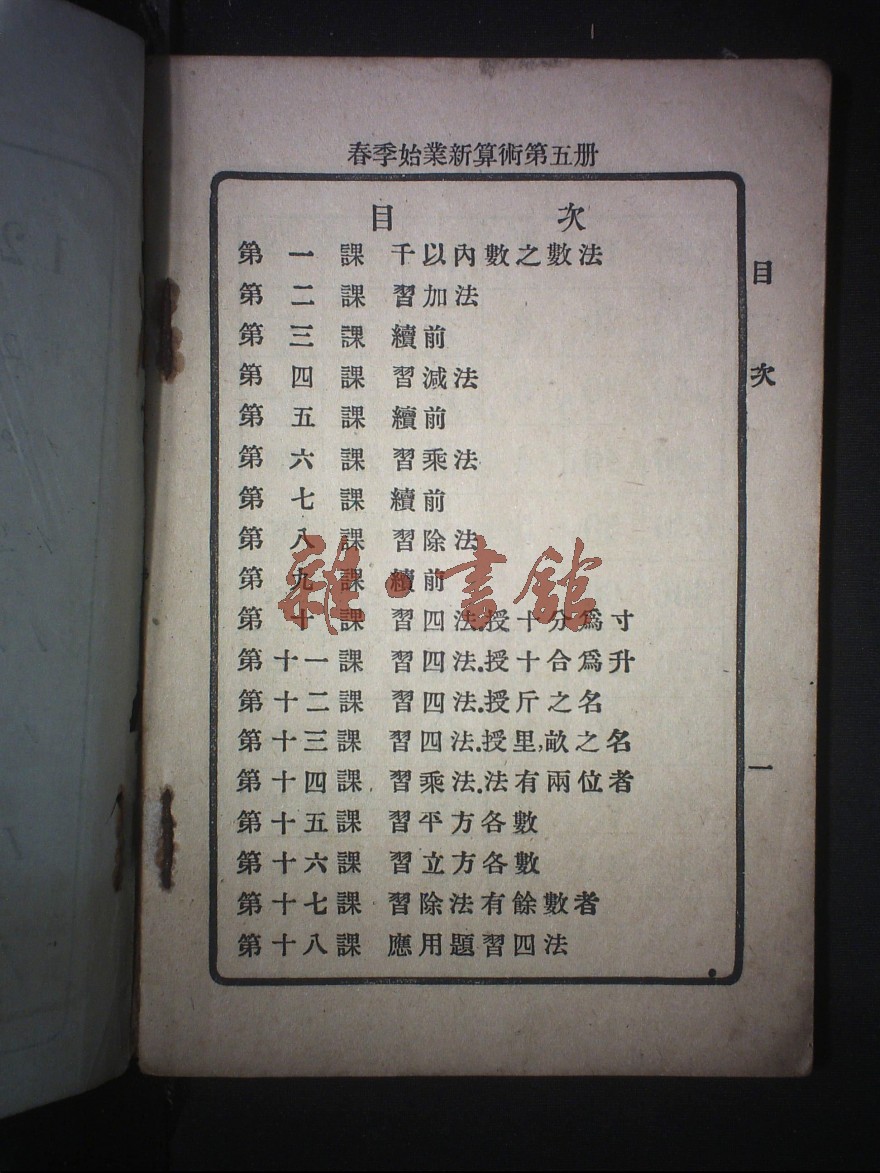 春季始業新算術第五册
目次
第一課 千以內數之數法
第二課 習加法
第三課 續前
第四課 習減法
第五課 續前
第六課 習乘法
第七課 續前
第八課 習除法
第九課 續前
第十課 習四法.授十分爲寸
第十一課 習四法.授十合爲升
第十二課 習四法.授斤之名
第十三課 習四法.授里,畝之名
第十四課 習乘法.法有兩位者
第十五課 習平方各數
第十六課 習立方各數
第十七課 習除法有餘數者
第十八課 應用題習四法
目次
一
雜·書館